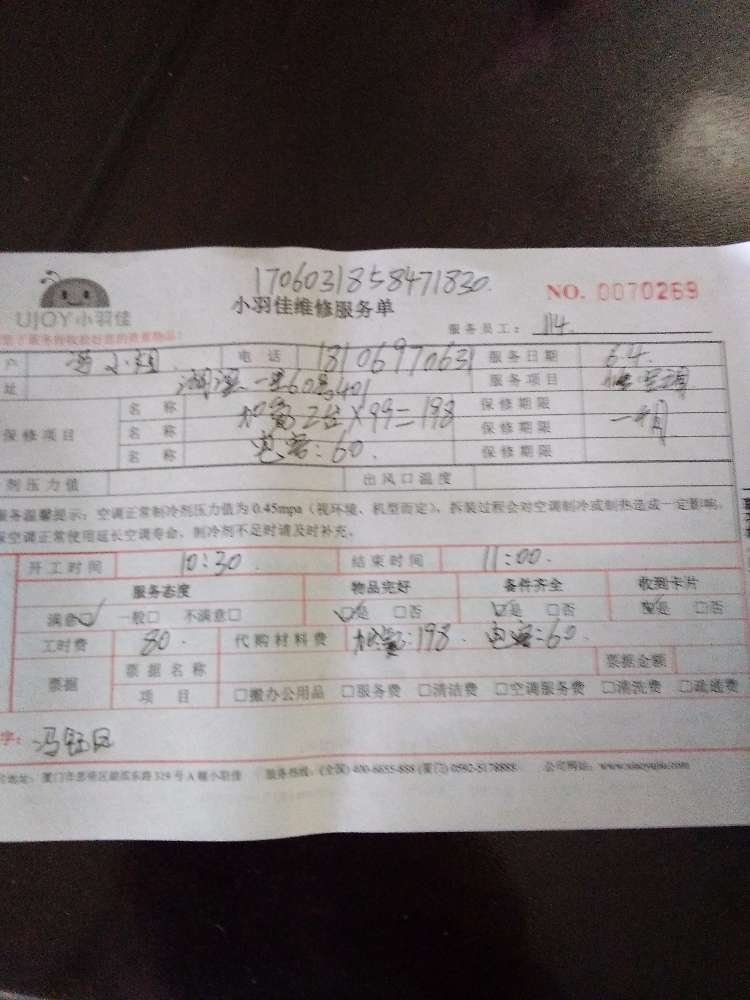 1706031858471830.
UJOY小羽佳
小羽佳维修服务单
NO. 0070269
服务员工： 114.
户 冯小姐 电话 18106970631 服务日期 6.4.
址 60号401 服务项目
保修项目
名称 加氟2台×99=198 保修期限
名称 电容：60. 保修期限 一个月
名称 保修期限
剂压力值 出风口温度
服务温馨提示：空调正常制冷剂压力值为0.45mpa（视环境、机型而定），拆装过程会对空调制冷或制热造成一定影响，
保空调正常使用延长空调寿命，制冷剂不足时请及时补充。
开工时间 10:30. 结束时间 11:00.
服务态度 物品完好 备件齐全 收到卡片
满意☑ 一般□ 不满意□ ☑是 □否 ☑是 □否 ☑是 □否
工时费 80. 代购材料费 加氟：198. 电容：60.
票据 票据名称 票据金额
项目 □搬办公用品 □服务费 □清洁费 □空调服务费 □清洗费 □疏通费
字： 冯钰凤
地址：厦门市思明区 东路319号A幢小羽佳 服务热线：(全国) 400-6655-888 (厦门) 0592-5178888 公司网站：www.xiaoyujia.com